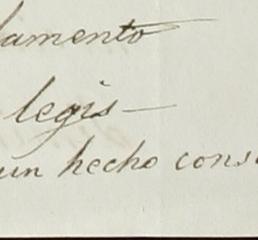 lamento
legis—
un hecho cons